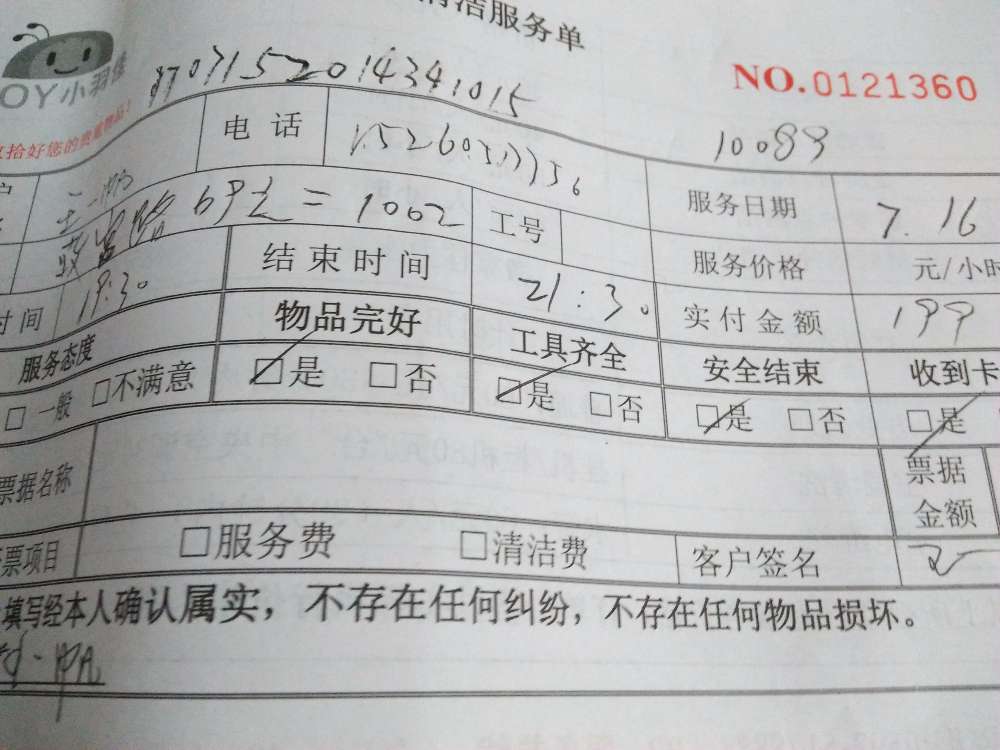 清洁服务单
OY小羽佳
NO.0121360
拾好您的贵重物品!
10089
电话
服务日期 7.16
=1002 工号
服务价格 元/小时
时间 19:30 结束时间 21:30 实付金额 199
服务态度 物品完好 工具齐全 安全结束 收到卡
□一般 □不满意 ☑是 □否 ☑是 □否 ☑是 □否 ☑是
票据名称 票据金额
票项目 □服务费 □清洁费 客户签名
填写经本人确认属实，不存在任何纠纷，不存在任何物品损坏。